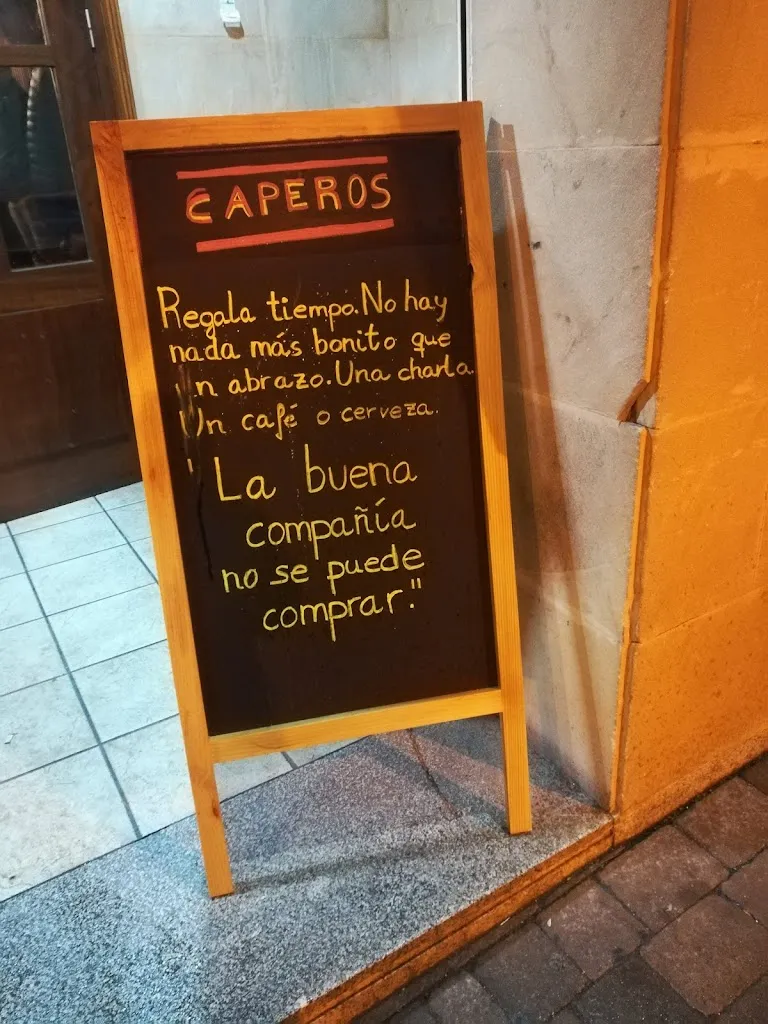 CAPEROS
Regala tiempo. No hay
nada más bonito que
un abrazo. Una charla
Un café o cerveza.
"La buena
compañía
no se puede
comprar."